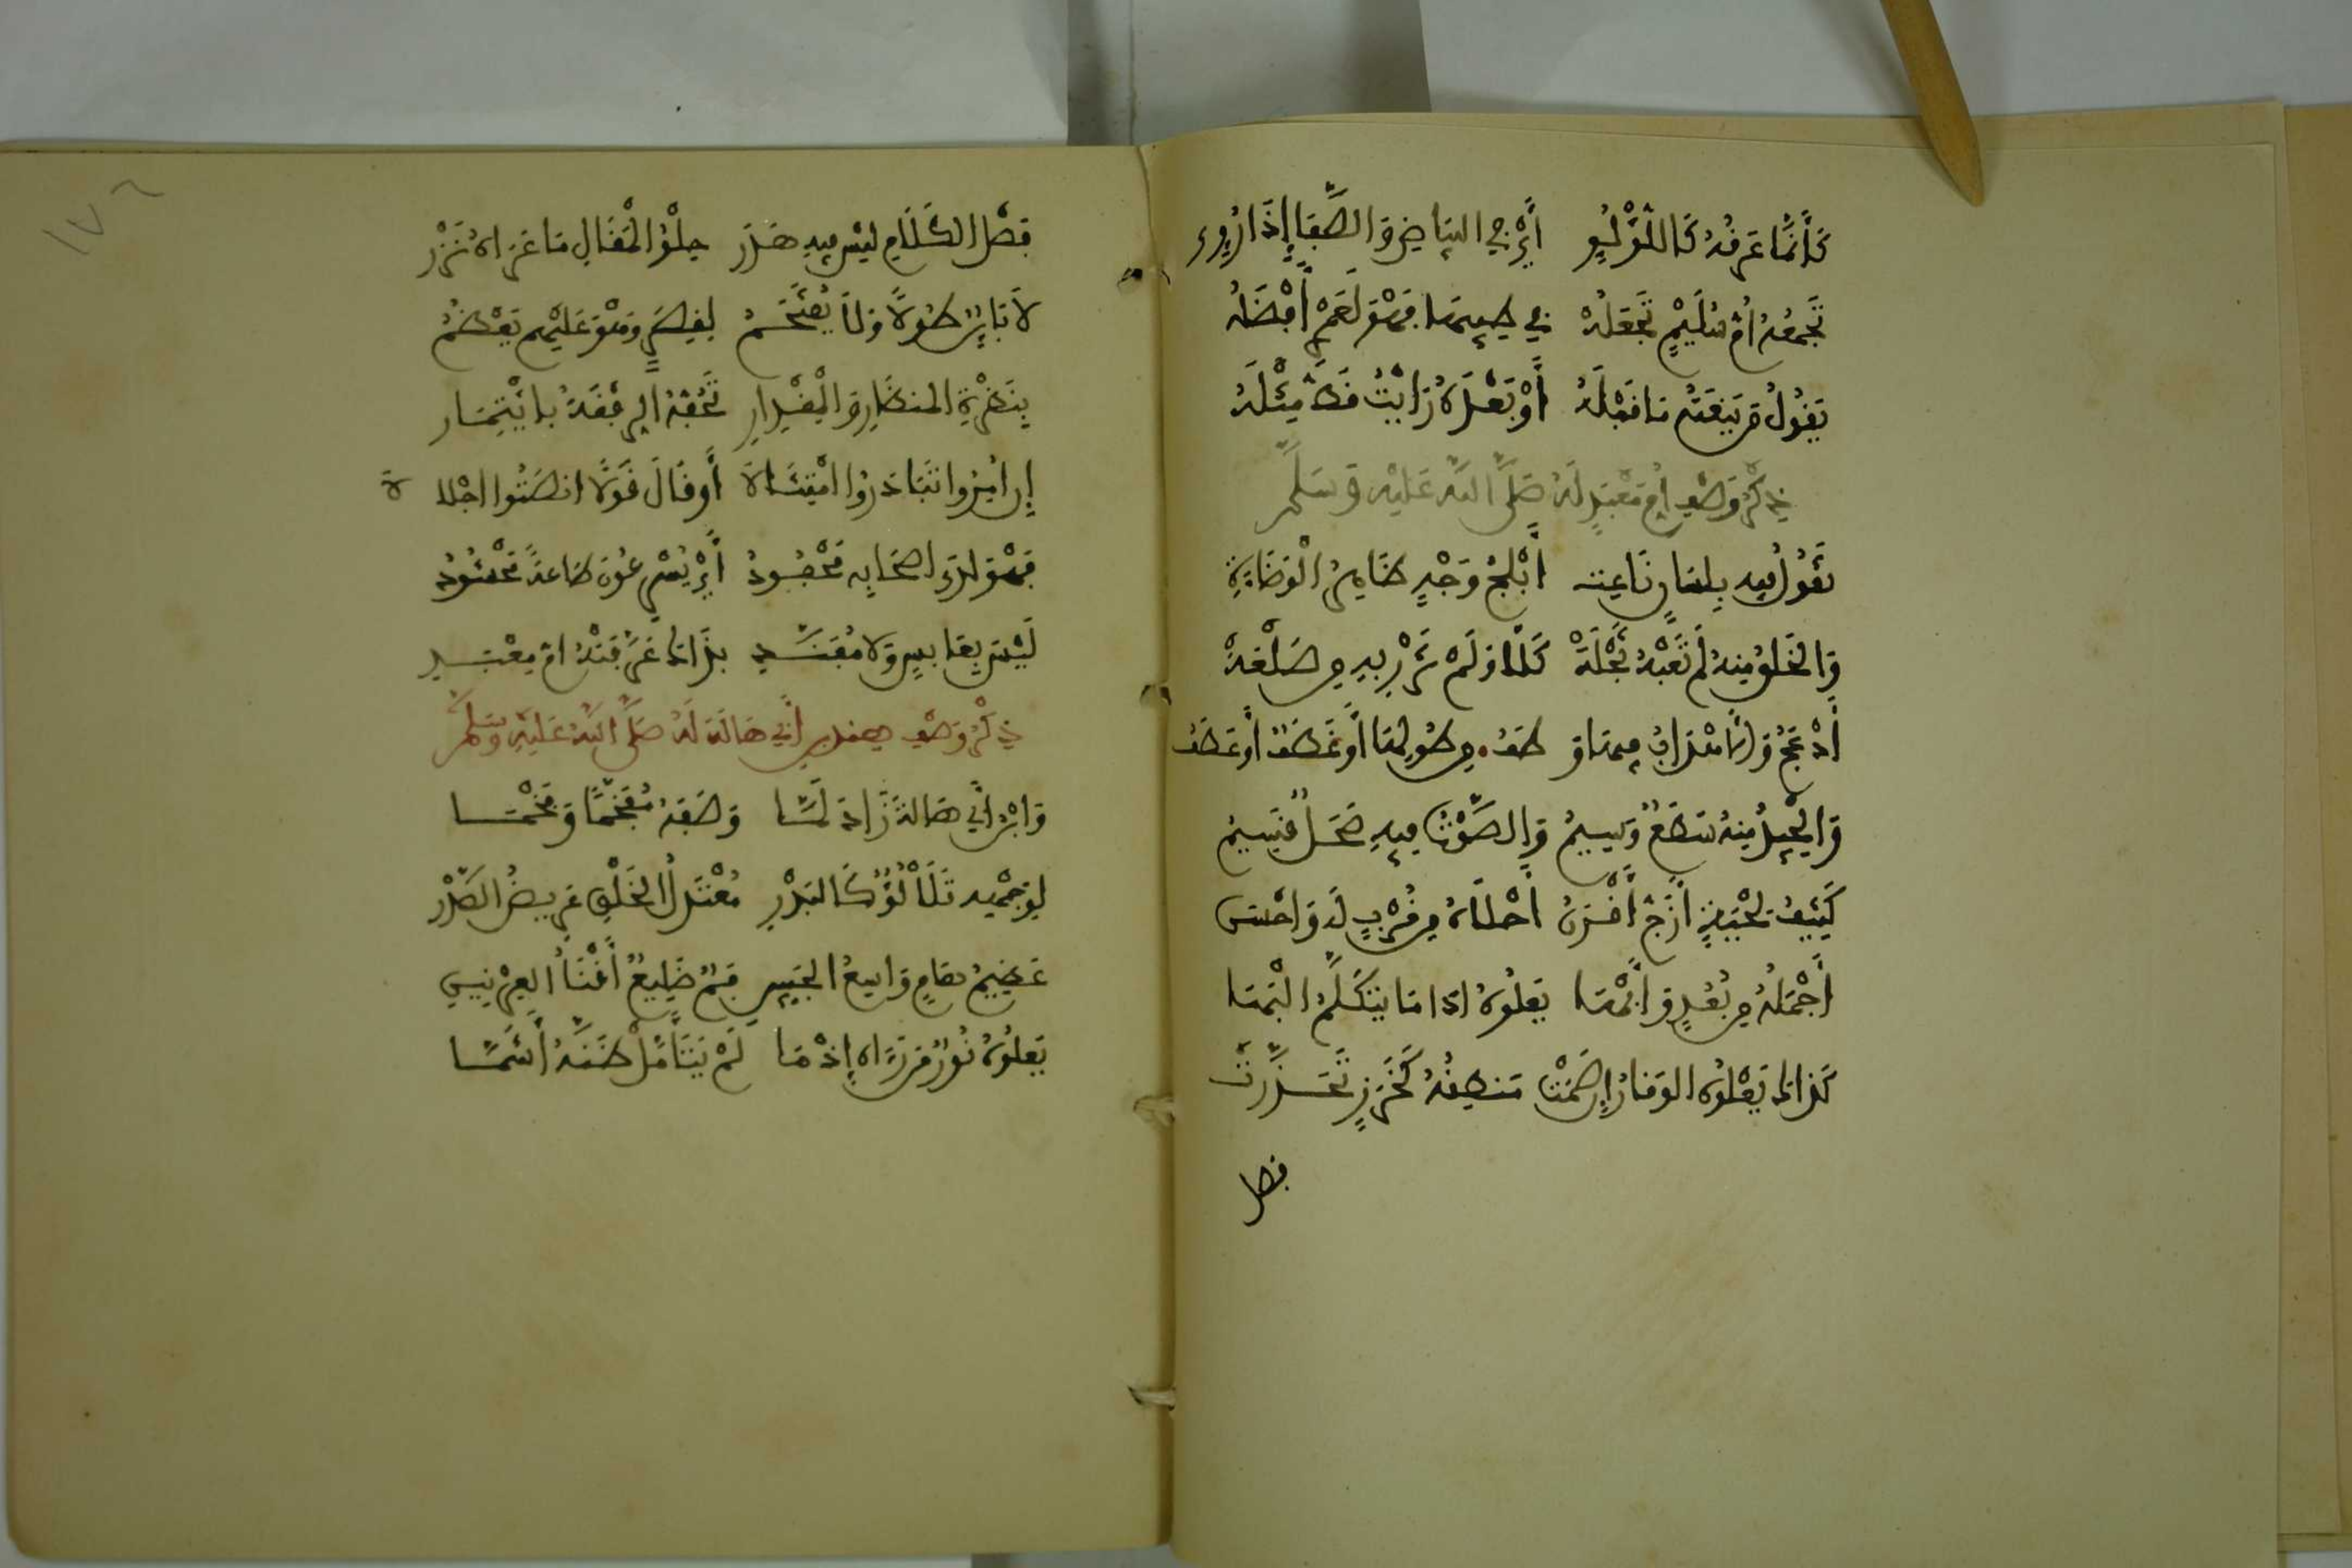 كَأَنَّمَا عَرَقُهُ كَاللُّؤْلُؤِ أَيْ فِي البَيَاضِ وَالصَّفَا إِذَا رُءِي
تَجْمَعُهُ أُمُّ سُلَيْمٍ تَجْعَلُهْ فِي طِيبِهَا فَهْوَ لَعَمْرِي أَفْضَلُهْ
يَقُولُ مَنْ يَنْعَتُهُ مَا قَبْلَهُ أَوْ بَعْدَهُ رَأَيْتُ قَطُّ مِثْلَهُ
ذِكْرُ وَصْفِ أُمِّ مَعْبَدٍ لَهُ صَلَّى اللَّهُ عَلَيْهِ وَسَلَّمَ
تَقُولُ فِيهِ بِلِسَانِ نَاعِتِهِ أَبْلَجُ وَجْهٍ ظَاهِرُ الْوَضَاءَةِ
وَالخَلْقُ مِنْهُ لَمْ تَعِبْهُ ثُجْلَةْ كَلَّا وَلَمْ تُزْرِ بِهِ مِنْ صَعْلَةْ
أَدْعَجُ وَالأَهْدَابُ فِيهَا وَطَفُ مِنْ طُولِهَا أَوْ غَطَفٌ أَوْ عَطَفُ
وَالجِيدُ مِنْهُ سَطَعٌ وَسِيمُ وَالصَّوْتُ فِيهِ صَحَلٌ قَسِيمُ
كَثِيفُ لِحْيَةٍ أَزَجُّ أَقْرَنُ أَحْلَاهُ مِنْ قُرْبٍ لَهُ وَأَحْسَنُ
أَجْمَلُهُ مِنْ بُعْدٍ وَأَبْهَا يَعْلُوهُ إِذَا مَا يَتَكَلَّمُ الْبَهَا
كَذَاكَ يَعْلُوهُ الوَقَارُ إِنْ صَمَتْ مَنْطِقُهُ كَخَرَزٍ تَحَدَّرَتْ
فصل
١٧٦
فَصْلُ الكَلَامِ لَيْسَ فِيهِ هَذَرُ حُلْوُ الْمَقَالِ مَا عَرَاهُ نَزْرُ
لَا بَائِنٌ طُولًا وَلَا يُقْتَحَمُ لِقِصَرٍ وَهْوَ عَلَيْهِمْ يَعْظُمُ
بِنَضْرَةِ المَنْظَرِ وَالْمِقْدَارِ تَحُفُّهُ الرِفْقَةُ بِائْتِمَارِ
إِنْ أُمِرُوا تَبَادَرُوا امْتِثَالَهْ أَوْ قَالَ قَوْلًا أَنْصَتُوا إِجْلَالَهْ
فَهْوَ لَدَى أَصْحَابِهِ مَحْفُودُ أَيْ يُسْرِعُونَ طَاعَةً مَحْشُودُ
لَيْسَ بِعَابِسٍ وَلَا مُفَنِّدِ بِذَاكَ عَرَّفَتْهُ أُمُّ مَعْبَدِ
ذِكْرُ وَصْفِ هِنْدِ بنِ أَبِي هَالَةَ لَهُ صَلَّى اللَّهُ عَلَيْهِ وَسَلَّمَ
وَابْنُ أَبِي هَالَةَ زَادَ لَمَّا وَصَفَهُ مُفَخَّمًا وَفَخْمَا
لِوَجْهِهِ تَلَأْلُؤٌ كَالبَدْرِ مُعْتَدِلُ الخَلْقِ عَرِيضُ الصَّدْرِ
عَظِيمُ هَامٍ وَاسِعُ الجَبِينِ فَمٌ ضَلِيعٌ أَقْنَأُ العِرْنِينِ
يَعْلُوهُ نُورٌ مَنْ رَءَاهُ إِذْ مَا لَمْ يَتَأَمَّلْ ظَنَّهُ أَشَمَّا